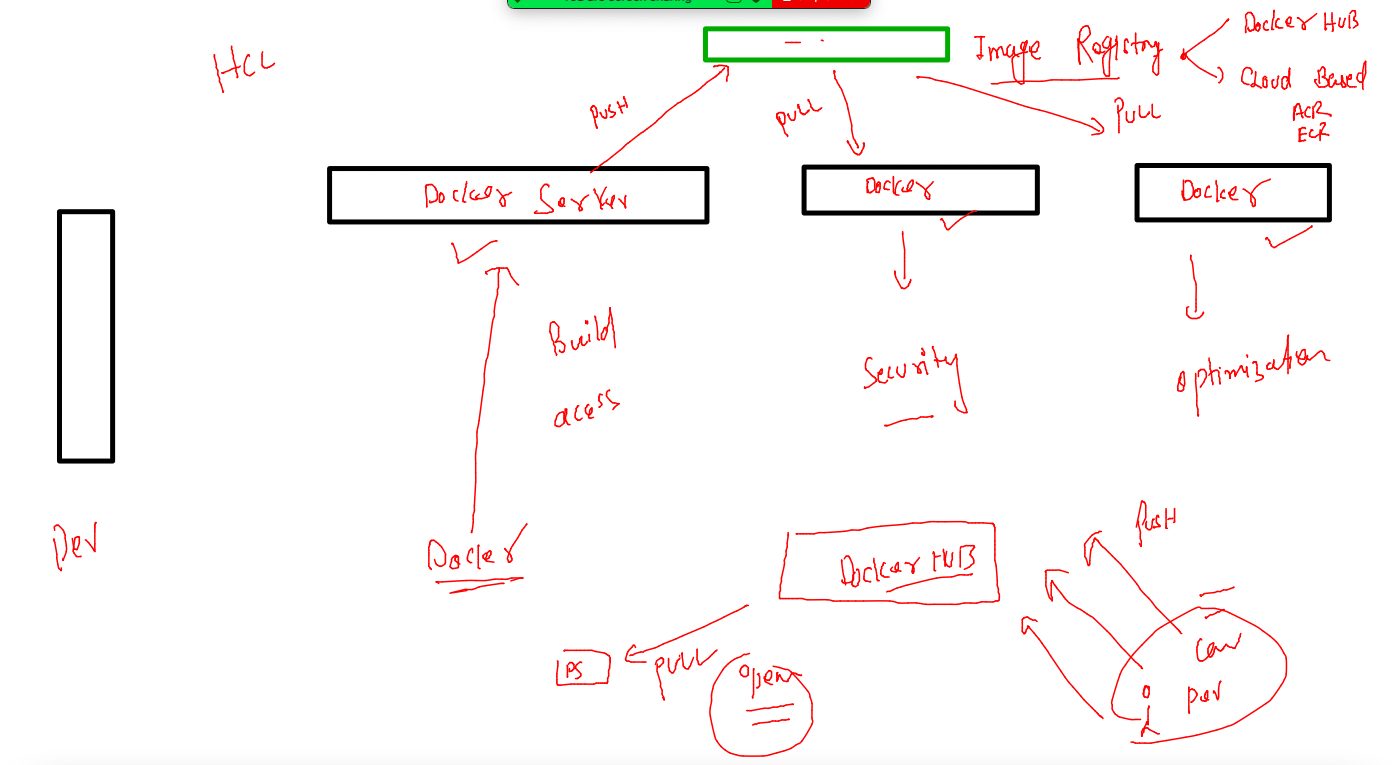 HCL
Image Registry
Docker HUB
Cloud Based
ACR
ECR
PUSH
PULL
PULL
Docker Server
Docker
Docker
Build
acess
Security
optimization
Dev
Docker
Docker HUB
PUSH
PS
PULL
open